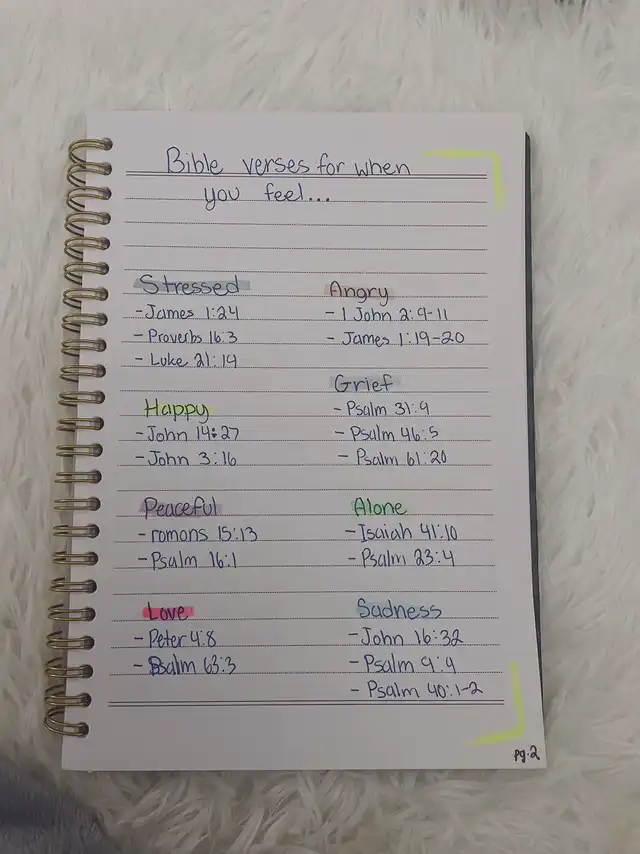 Bible verses for when
you feel...
Stressed
- James 1:24
- Proverbs 16:3
- Luke 21:19
Happy
- John 14:27
- John 3:16
Peaceful
- romans 15:13
- Psalm 16:1
Love
- Peter 4:8
- Psalm 63:3
Angry
- 1 John 2:9-11
- James 1:19-20
Grief
- Psalm 31:9
- Psalm 46:5
- Psalm 61:20
Alone
- Isaiah 41:10
- Psalm 23:4
Sadness
- John 16:32
- Psalm 9:9
- Psalm 40:1-2
pg.2